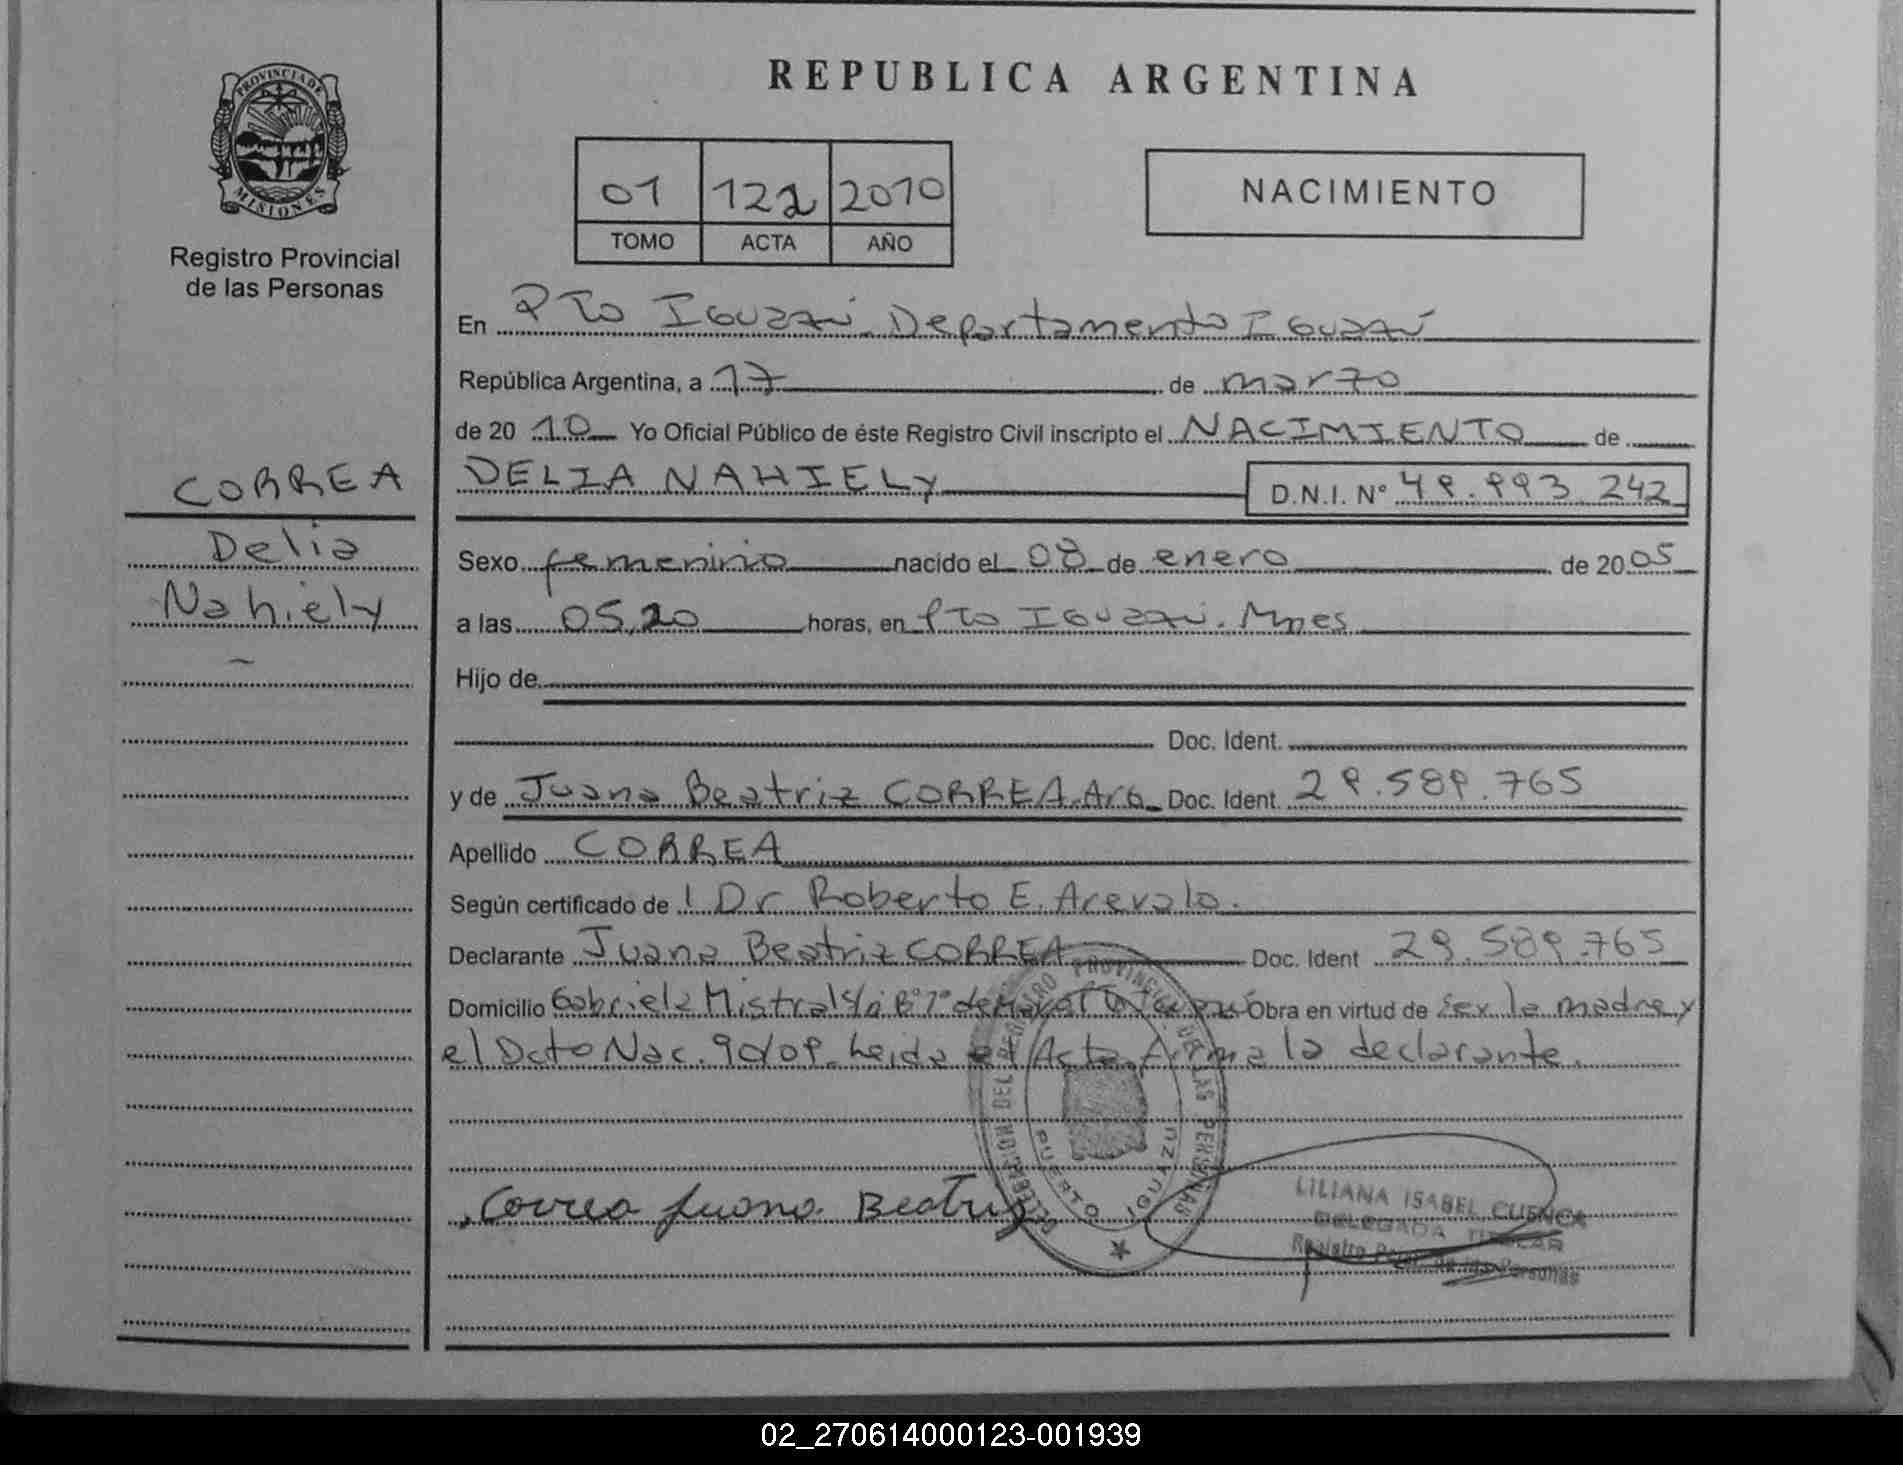 PROVINCIA DE
MISIONES
Registro Provincial
de las Personas
CORREA
Delia
Nahiely
REPUBLICA ARGENTINA
01 122 2010
TOMO ACTA AÑO
NACIMIENTO
En Pto Iguazú. Departamento Iguazú
República Argentina, a 17 de marzo
de 20 10 Yo Oficial Público de éste Registro Civil inscripto el NACIMIENTO de
DELIA NAHIELY D.N.I. Nº 49.993.242
Sexo femenino nacido el 08 de enero de 20 05
a las 05,20 horas, en Pto Iguazú. Mnes
Hijo de
Doc. Ident.
y de Juana Beatriz CORREA. Arg Doc. Ident. 29.589.765
Apellido CORREA
Según certificado de l Dr Roberto E. Arevalo.
Declarante Juana Beatriz CORREA Doc. Ident 29.589.765
Domicilio Gabriela Mistral s/n Bº 1º de Mayo Pto Iguazú Obra en virtud de ser la madre y
el Dcto Nac. 90/09. Leida el Acta, firma la declarante.
Correa Juana Beatriz
DELEGACION DEL REGISTRO PROVINCIAL DE LAS PERSONAS
PUERTO IGUAZU
LILIANA ISABEL CUENCA
DELEGADA TITULAR
Registro Pcial. de las Personas
02_270614000123-001939